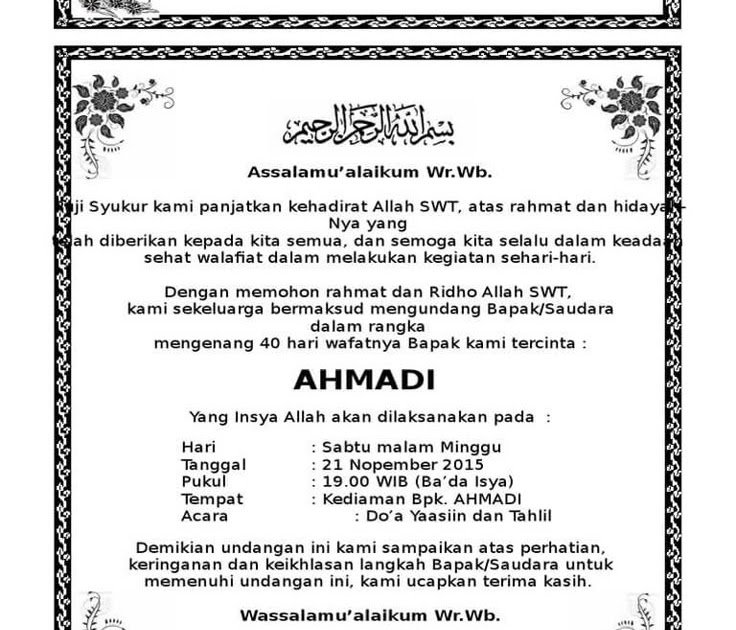 بسم الله الرحمن الرحيم
Assalamu’alaikum Wr.Wb.
Syukur kami panjatkan kehadirat Allah SWT, atas rahmat dan
Nya yang
diberikan kepada kita semua, dan semoga kita selalu dalam
sehat walafiat dalam melakukan kegiatan sehari-hari.
Dengan memohon rahmat dan Ridho Allah SWT,
kami sekeluarga bermaksud mengundang Bapak/Saudara
dalam rangka
mengenang 40 hari wafatnya Bapak kami tercinta :
AHMADI
Yang Insya Allah akan dilaksanakan pada :
Hari : Sabtu malam Minggu
Tanggal : 21 Nopember 2015
Pukul : 19.00 WIB (Ba’da Isya)
Tempat : Kediaman Bpk. AHMADI
Acara : Do’a Yaasiin dan Tahlil
Demikian undangan ini kami sampaikan atas perhatian,
keringanan dan keikhlasan langkah Bapak/Saudara untuk
memenuhi undangan ini, kami ucapkan terima kasih.
Wassalamu’alaikum Wr.Wb.